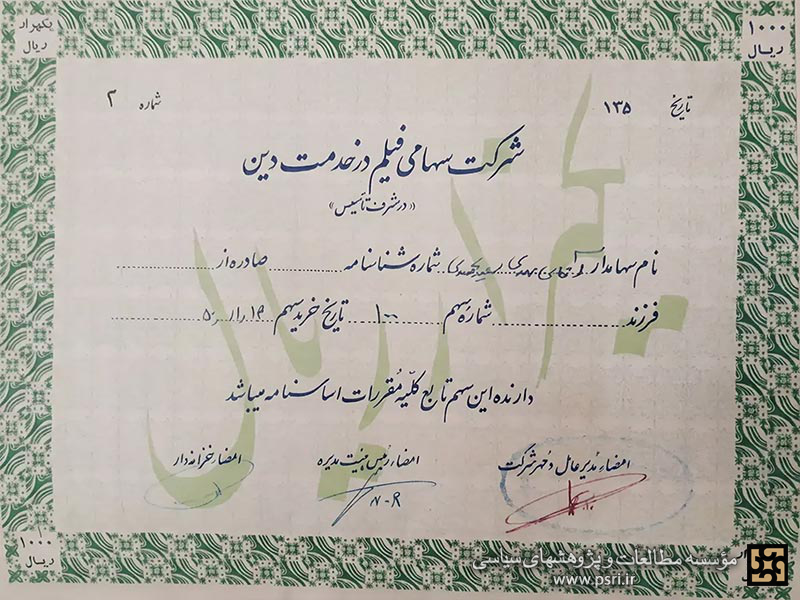 ۱۰۰۰ ریال
یکهزار ریال
تاریخ ۱۳۵ شماره ۲
شرکت سهامی فیلم در خدمت دین
«در شرف تأسیس»
نام سهامدار مهدی شماره شناسنامه صادره از
فرزند شماره سهم ۱۰۰ تاریخ خرید سهم
دارنده این سهم تابع کلیه مقررات اساسنامه میباشد
امضاء مدیر عامل و مهر شرکت امضاء رئیس هیئت مدیره امضاء خزانه‌دار
۱۰۰۰ ریال
مؤسسه مطالعات و پژوهشهای سیاسی
www.psri.ir